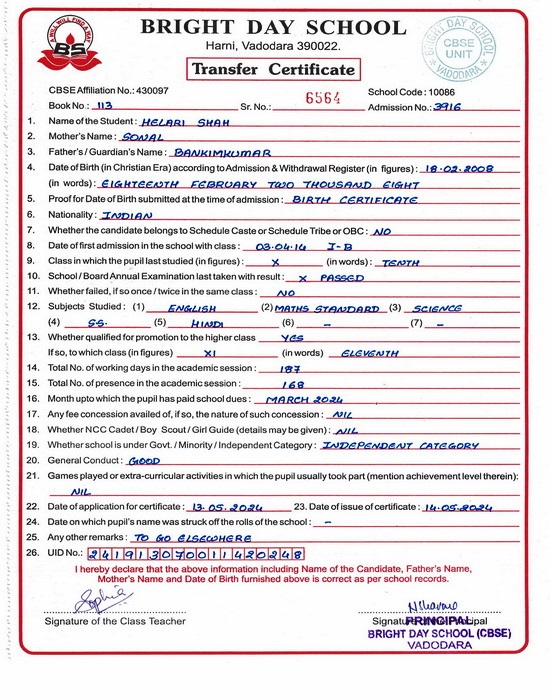 A WILL WILL FIND A WAY
BS
BRIGHT DAY SCHOOL
Harni, Vadodara 390022.
Transfer Certificate
BRIGHT DAY SCHOOL
CBSE
UNIT
* VADODARA *
CBSE Affiliation No.: 430097
School Code : 10086
Book No.: 113
Sr. No.: 6564
Admission No.: 3916
1. Name of the Student : HELARI SHAH
2. Mother's Name : SONAL
3. Father's / Guardian's Name : BANKIMKUMAR
4. Date of Birth (in Christian Era) according to Admission & Withdrawal Register (in figures) : 18.02.2008
(in words) : EIGHTEENTH FEBRUARY TWO THOUSAND EIGHT
5. Proof for Date of Birth submitted at the time of admission : BIRTH CERTIFICATE
6. Nationality : INDIAN
7. Whether the candidate belongs to Schedule Caste or Schedule Tribe or OBC : NO
8. Date of first admission in the school with class : 03.04.14 I-B
9. Class in which the pupil last studied (in figures) : X (in words) : TENTH
10. School / Board Annual Examination last taken with result : X PASSED
11. Whether failed, if so once / twice in the same class : NO
12. Subjects Studied : (1) ENGLISH (2) MATHS STANDARD (3) SCIENCE
(4) SS. (5) HINDI (6) - (7) -
13. Whether qualified for promotion to the higher class YES
If so, to which class (in figures) XI (in words) ELEVENTH
14. Total No. of working days in the academic session : 187
15. Total No. of presence in the academic session : 168
16. Month upto which the pupil has paid school dues : MARCH 2024
17. Any fee concession availed of, if so, the nature of such concession : NIL
18. Whether NCC Cadet / Boy Scout / Girl Guide (details may be given) : NIL
19. Whether school is under Govt. / Minority / Independent Category : INDEPENDENT CATEGORY
20. General Conduct : GOOD
21. Games played or extra-curricular activities in which the pupil usually took part (mention achievement level therein):
NIL
22. Date of application for certificate : 13.05.2024 23. Date of issue of certificate : 14.05.2024
24. Date on which pupil's name was struck off the rolls of the school : -
25. Any other remarks : TO GO ELSEWHERE
26. UID No.: 241913070011420248
I hereby declare that the above information including Name of the Candidate, Father's Name,
Mother's Name and Date of Birth furnished above is correct as per school records.
Sophia
Signature of the Class Teacher
Signature of the Principal
PRINCIPAL
BRIGHT DAY SCHOOL (CBSE)
VADODARA